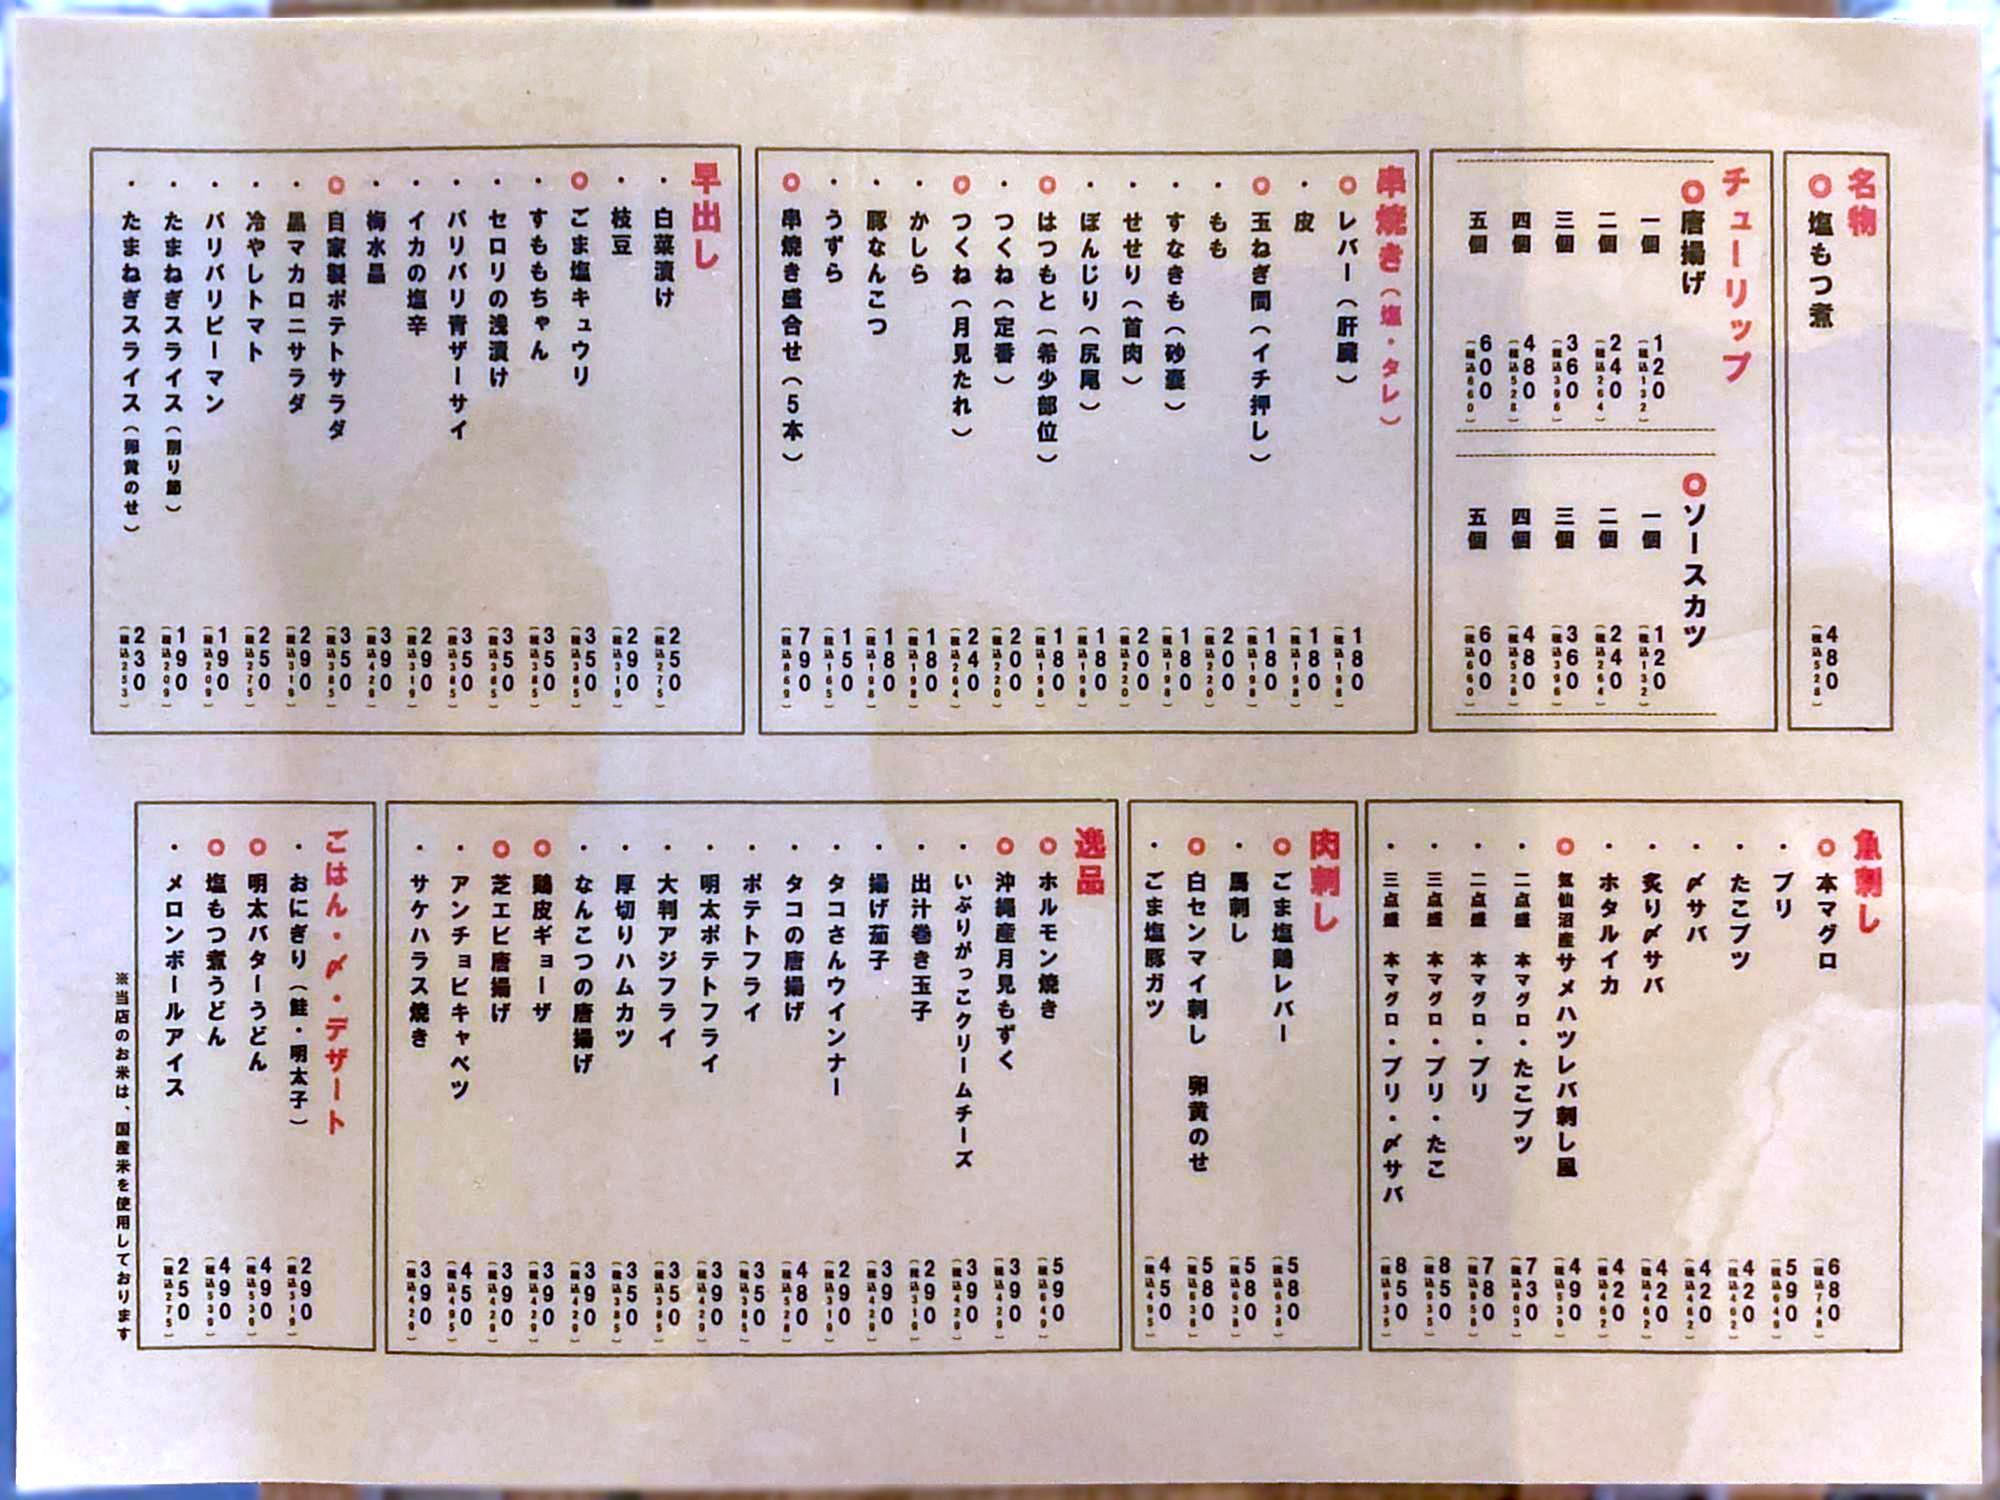 名物
◎塩もつ煮 480（税込528）
チューリップ
◎唐揚げ
一個 120（税込132）
二個 240（税込264）
三個 360（税込396）
四個 480（税込528）
五個 600（税込660）
◎ソースカツ
一個 120（税込132）
二個 240（税込264）
三個 360（税込396）
四個 480（税込528）
五個 600（税込660）
串焼き（塩・タレ）
◎レバー（肝臓） 180（税込198）
・皮 180（税込198）
◎玉ねぎ間（イチ押し） 180（税込198）
・もも 200（税込220）
・すなきも（砂嚢） 180（税込198）
・せせり（首肉） 200（税込220）
・ぼんじり（尻尾） 180（税込198）
◎はつもと（希少部位） 180（税込198）
・つくね（定番） 200（税込220）
◎つくね（月見たれ） 240（税込264）
・かしら 180（税込198）
・豚なんこつ 180（税込198）
・うずら 150（税込165）
◎串焼き盛合せ（5本） 790（税込869）
早出し
・白菜漬け 250（税込275）
・枝豆 290（税込319）
◎ごま塩キュウリ 350（税込385）
・すももちゃん 350（税込385）
・セロリの浅漬け 350（税込385）
・パリパリ青ザーサイ 350（税込385）
・イカの塩辛 290（税込319）
・梅水晶 390（税込428）
◎自家製ポテトサラダ 350（税込385）
・黒マカロニサラダ 290（税込319）
・冷やしトマト 250（税込275）
・パリパリピーマン 190（税込209）
・たまねぎスライス（削り節） 190（税込209）
・たまねぎスライス（卵黄のせ） 230（税込253）
魚刺し
◎本マグロ 680（税込748）
・ブリ 590（税込649）
・たこブツ 420（税込462）
・〆サバ 420（税込462）
・炙り〆サバ 420（税込462）
・ホタルイカ 420（税込462）
◎気仙沼産サメハツレバ刺し風 490（税込539）
・二点盛 本マグロ・たこブツ 730（税込803）
・二点盛 本マグロ・ブリ 780（税込858）
・三点盛 本マグロ・ブリ・たこ 850（税込935）
・三点盛 本マグロ・ブリ・〆サバ 850（税込935）
肉刺し
◎ごま塩鶏レバー 580（税込638）
・馬刺し 580（税込638）
◎白センマイ刺し 卵黄のせ 580（税込638）
・ごま塩豚ガツ 450（税込495）
逸品
◎ホルモン焼き 590（税込649）
◎沖縄産月見もずく 390（税込429）
・いぶりがっこクリームチーズ 390（税込429）
・出汁巻き玉子 290（税込319）
・揚げ茄子 390（税込429）
・タコさんウインナー 290（税込319）
・タコの唐揚げ 480（税込528）
・ポテトフライ 350（税込385）
・明太ポテトフライ 390（税込429）
・大判アジフライ 350（税込385）
・厚切りハムカツ 350（税込385）
・なんこつの唐揚げ 390（税込429）
◎鶏皮ギョーザ 390（税込429）
◎芝エビ唐揚げ 390（税込429）
・アンチョビキャベツ 450（税込495）
・サケハラス焼き 390（税込429）
ごはん・〆・デザート
・おにぎり（鮭・明太子） 290（税込319）
◎明太バターうどん 490（税込539）
◎塩もつ煮うどん 490（税込539）
・メロンボールアイス 250（税込275）
※当店のお米は、国産米を使用しております